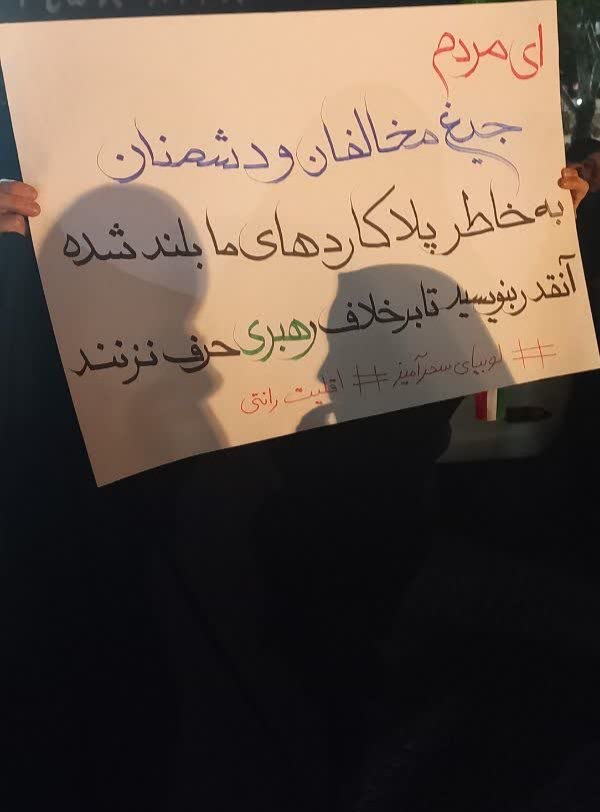 ای مردم
جیغ مخالفان و دشمنان
به خاطر پلاکاردهای ما بلند شده
آنقدر بنویسید تا برخلاف رهبری حرف نزنند
## لوبیای سحرآمیز # اقلیت رانتی